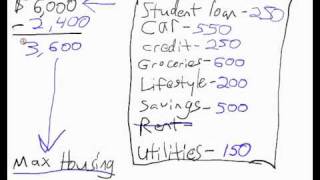 $ 6000
- 2,400
3,600
Max Housing
Student loan - 250
Car - 550
credit - 250
Groceries - 600
Lifestyle - 200
Savings - 500
Rent
Utilities - 150